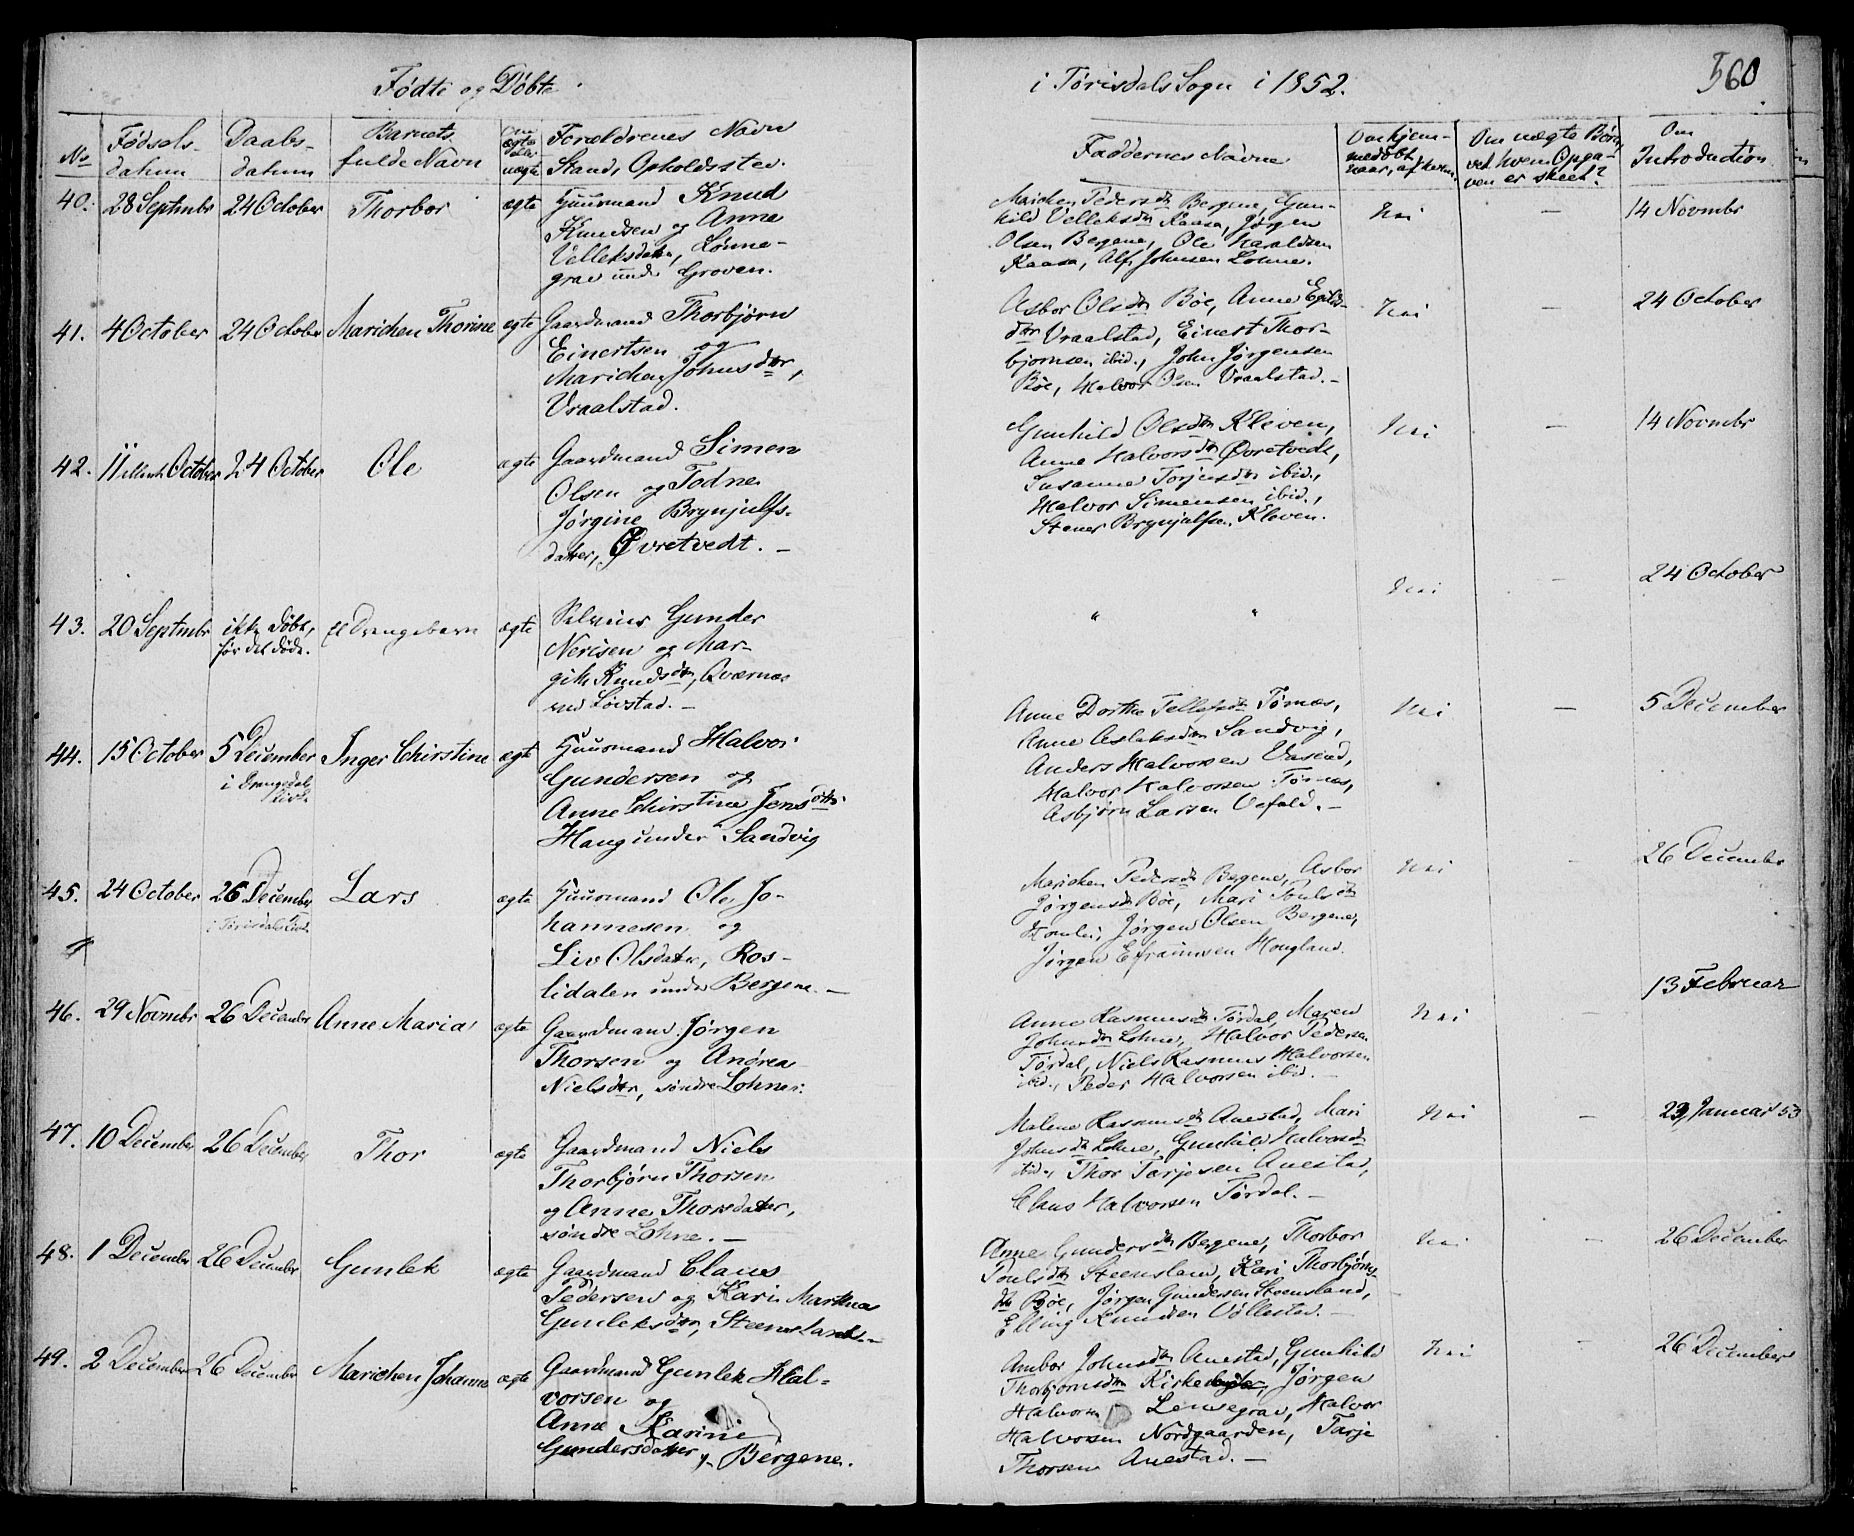 Fødte og Døbte
i Tørisdals Sogn i 1852.
560
No
Fødsels-
datum
Daabs-
datum
Barnets
fulde Navn
Om
ægte
eller
uægte
Forældrenes Navn
Stand, Opholdssted.
Faddernes Navne
Om hjem-
medøbt
naar, af hvem
Om uægte Børn,
ved hvem Opga-
ven er skeet?
Om
Introduction
40.
28 Septmbr
24 October
Thorbor
ægte
Huusmand Knud
Knudsen og Anne
Velleksdatter, Lønne-
grav under Groven.
Marichen Pedersdtr Bergene, Gun-
hild Velleksdtr Kaasa, Jørgen
Olsen Bergene, Ole Haraldsen
Kaasa, Alf Johnsen Lohne.
Nei
—
14 Novmbr
41.
4 October
24 October
Marichen Thorine
ægte
Gaardmand Thorbjørn
Einertsen og
Marichen Johnsdtr,
Vraalstad.
Asbor Olsdtr Bøe, Anne
dtr Vraalstad, Einert Thor-
bjørnsen ibid., John Jørgensen
Bøe, Halvor Olsen Vraalstad. —
Nei
—
24 October
42.
11 October
24 October
Ole
ægte
Gaardmand Simen
Olsen og Todne
Jørgine Brynjulfs-
datter, Øvretvedt. —
Gunhild Olsdtr Kleven,
Anne Halvorsdtr Øvretvedt,
Susanne Torjusdtr ibid.,
Halvor Simensen ibid.,
Stener Brynjulfsen Kleven.
Nei
—
14 Novmbr
43.
20 Septmbr
ikke døbt,
før det døde.
et Drengebarn
ægte
Selveier Gunder
Nerisen og Mar-
git Knudsdtr, Qværnæs
ved Lovstad. —
"
"
Nei
—
24 October
44.
15 October
5 December
i Drangedals
Kirke
Inger Chirstine
ægte
Huusmand Halvor
Gundersen og
Anne Chirstine Jensdttr.
Haug under Sandvig
Anne Dorthe Tellefsdtr Tørnæs,
Anne Aslaksdtr Sandvig,
Anders Halvorsen
Halvor Halvorsen Tørnæs,
Asbjørn Larsen Vefald. —
Nei
—
5 December
45.
24 October
26 December
i Tørisdals Kirke
Lars
ægte
Huusmand Ole Jo-
hannesen og
Liv Olsdatter, Ros-
lidalen under Bergene. —
Marichen Pedersdtr Bergene, Asbor
Jørgensdtr Bøe, Mari
Jørgen Olsen Bergene,
Jørgen Efraimsen Hougland.
Nei
—
26 December
46.
29 Novmbr
26 December
Anne Maria
ægte
Gaardmand Jørgen
Thorsen og Andrea
Nielsdtr, søndre Lohne.
Anne Rasmusdtr Tørdal, Maren
Johnsdtr Lohne, Halvor Pedersen
Tørdal, Niels Rasmus Halvorsen
ibid., Peder Halvorsen ibid. —
Nei
—
13 Februar
47.
10 December
26 December
Thor
ægte
Gaardmand Niels
Thorbjørn Thorsen
og Anne Thorsdatter,
søndre Lohne. —
Malene Rasmusdtr Auestad, Mari
Johnsdtr Lohne, Gunhild Halvorsdtr
ibid., Thor Tarjesen Auestad,
Claus Halvorsen Tørdal. —
Nei
—
23 Januar 53
48.
1 December
26 December
Gunlek
ægte
Gaardmand Claus
Pedersen og Kari Marthea
Gunleksdtr, Steensland. —
Anne Gundersdtr Bergene, Thorbor
Poulsdtr Steensland, Kari Thorbjørns-
dtr Bøe, Jørgen Gundersen Steensland,
Elling Knudsen Vøllestad. —
Nei
—
26 December
49.
2 December
26 December
Marichen Johanne
ægte
Gaardmand Gunlek Hal-
vorsen og
Anne Karine
Gundersdatter, Bergene.
Ambor Johnsdtr Auestad, Gunhild
Thorbjørnsdtr Jørgen
Halvorsen Lensegrav, Halvor
Halvorsen Nordgaarden, Tarje
Thorsen Auestad. —
Nei
—
26 December